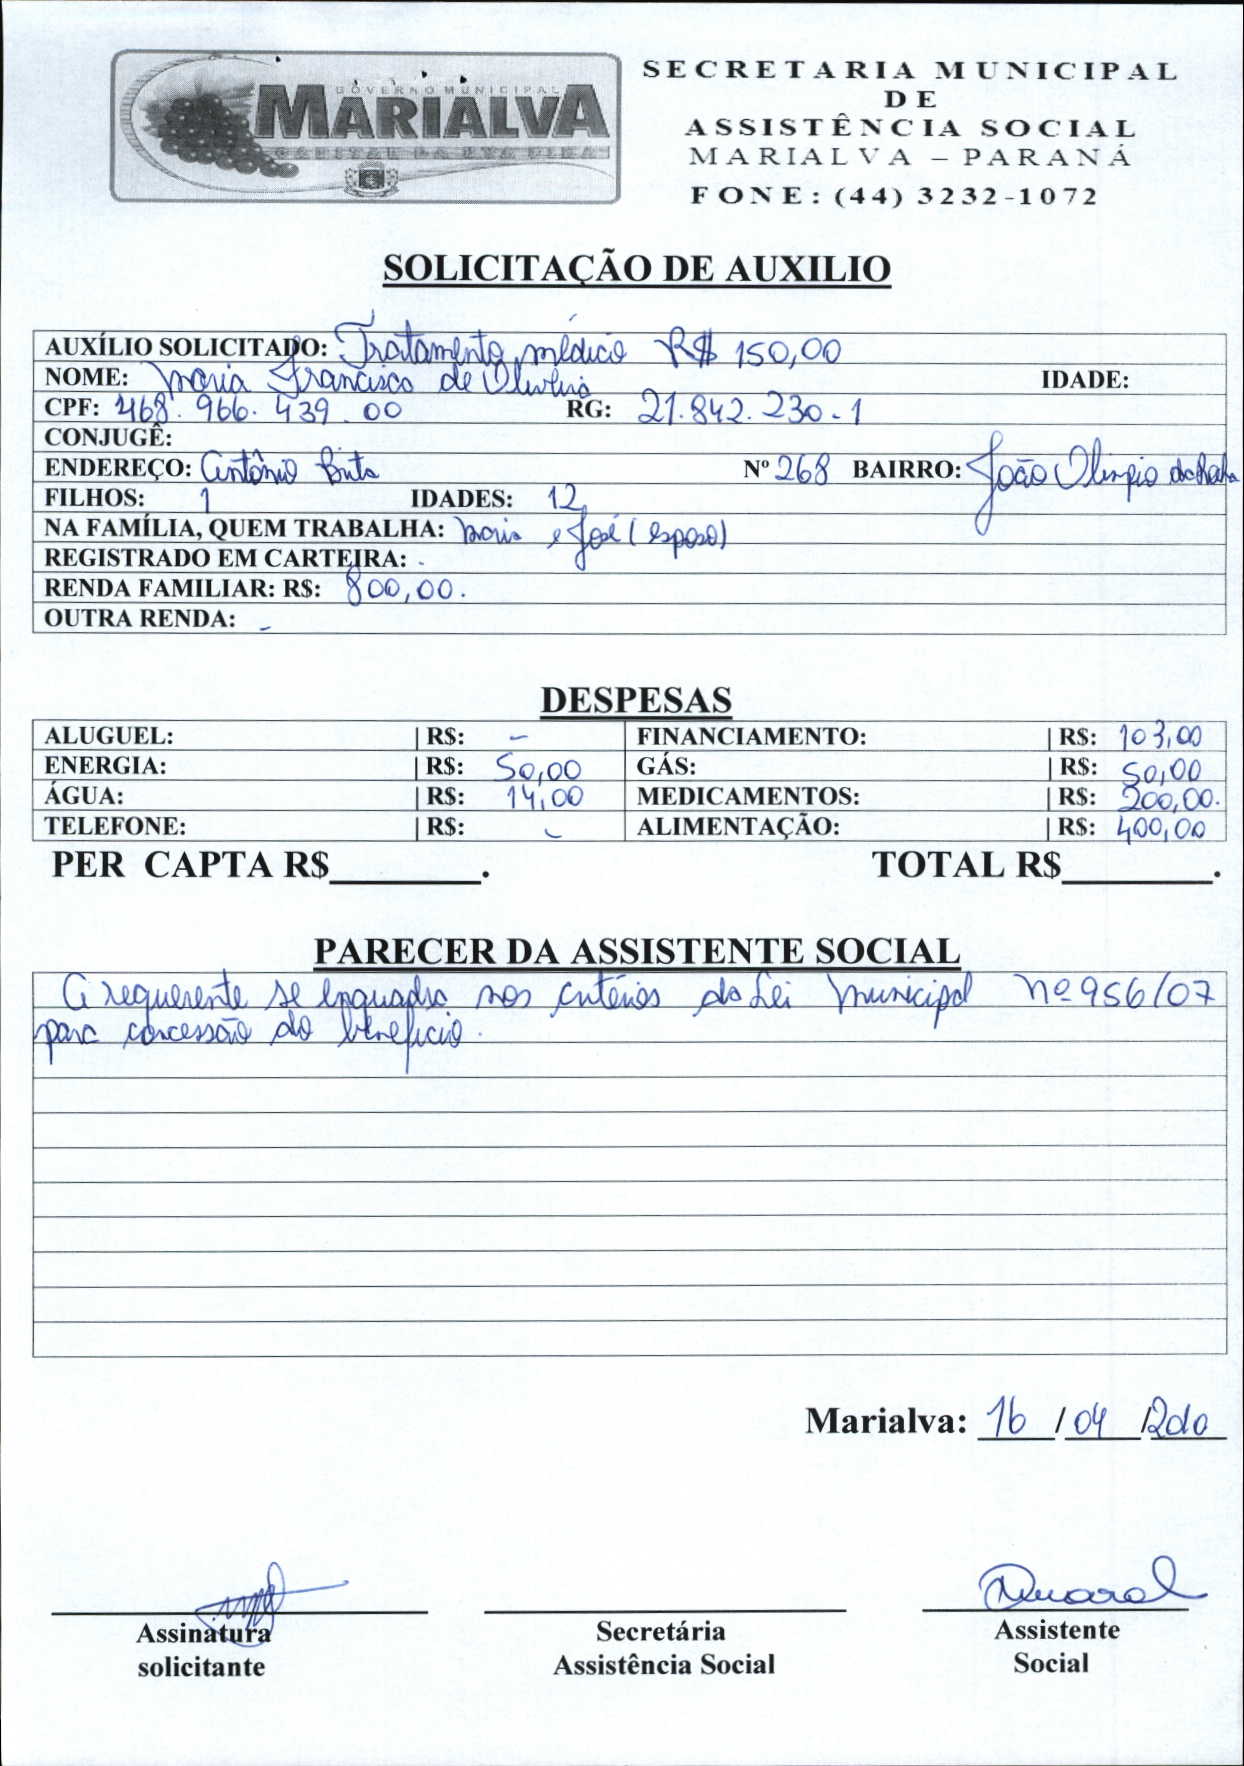 GOVERNO MUNICIPAL
MARIALVA
CAPITAL DA UVA FINA
SECRETARIA MUNICIPAL
DE
ASSISTÊNCIA SOCIAL
MARIALVA – PARANÁ
FONE: (44) 3232-1072
SOLICITAÇÃO DE AUXILIO
AUXÍLIO SOLICITADO: Tratamento médico R$ 150,00
NOME: Maria Francisca de Oliveira IDADE:
CPF: 468.966.439.00 RG: 21.842.230-1
CONJUGÊ:
ENDEREÇO: Antônio Brito Nº 268 BAIRRO: João Olimpio da Rocha
FILHOS: 1 IDADES: 12
NA FAMÍLIA, QUEM TRABALHA: Maria e José (esposo)
REGISTRADO EM CARTEIRA: -
RENDA FAMILIAR: R$: 800,00.
OUTRA RENDA: -
DESPESAS
ALUGUEL: | R$: - FINANCIAMENTO: | R$: 103,00
ENERGIA: | R$: 50,00 GÁS: | R$: 50,00
ÁGUA: | R$: 14,00 MEDICAMENTOS: | R$: 200,00.
TELEFONE: | R$: - ALIMENTAÇÃO: | R$: 400,00
PER CAPTA R$________. TOTAL R$________.
PARECER DA ASSISTENTE SOCIAL
A requerente se enquadra nos critérios da Lei Municipal nº 956/07
para concessão do benefício.
Marialva: 16 / 04 /2010
Assinatura
solicitante
Secretária
Assistência Social
Assistente
Social